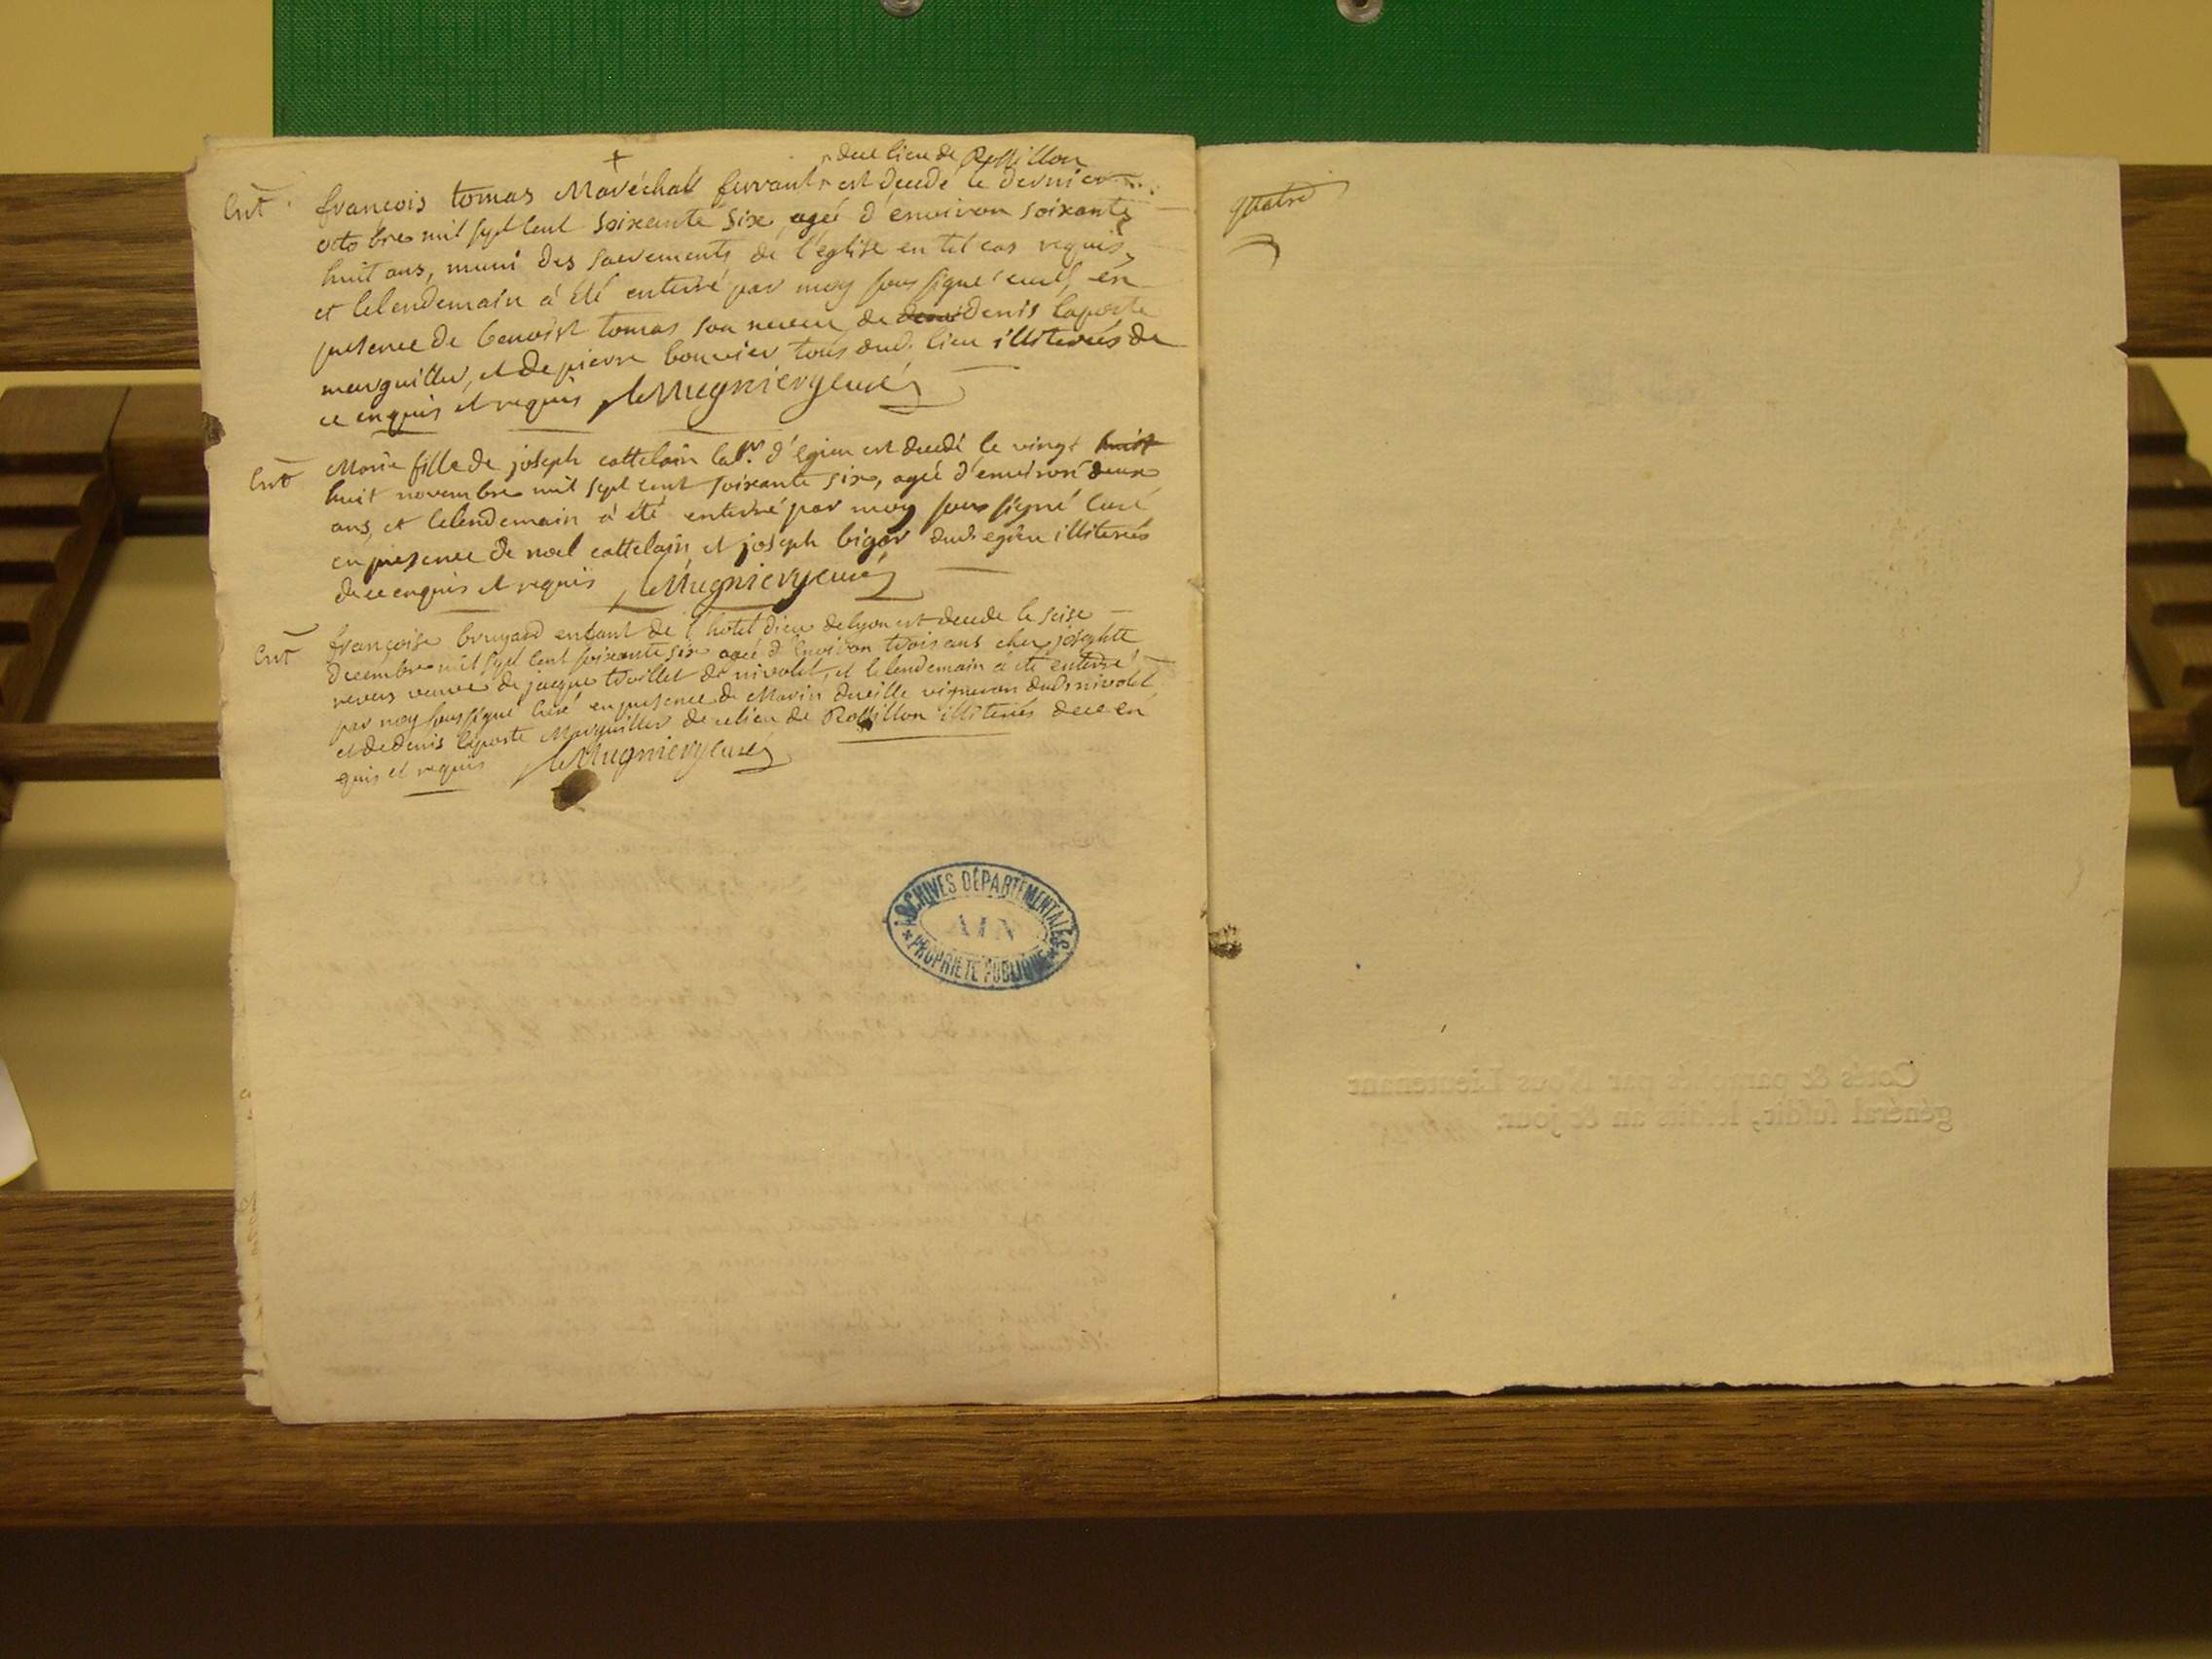 +
de ce lieu de Rossillon
Ent francois tomas Maréchal ferrant est decedé le dernier
octobre mil sept cent soixante six, agée d'environ soixante
huit ans, muni des sacrements de l'eglise en tel cas requis,
et lelendemain à été enterré par moy soussigné curé, en
presence de benoist tomas son neveu, de denis laporte
marguiller, et de pierre bouvier tous dud. lieu illiterés de
ce enquis et requis Mugnier curé
Ent Marie fille de joseph cattelain lab.r d'egieu est decedé le vingt huit
huit novembre mil sept cent soixante six, agée d'environ deux
ans, et lelendemain à été enterré par moy soussigné curé
en presence de noel cattelain et joseph bigot dud. egieu illiterés
de ce enquis et requis Mugnier curé
Ent francoise bruyard enfant de l'hotel dieu de lyon est decede le seise
decembre mil sept cent soixante six agée d'environ trois ans chez josephte
revers veuve de jacque trollet de nivolet, et lelendemain à été enterré
par moy soussigné curé en presence de Marin vigneron dud. nivolet,
et de denis laporte Marguiller de ce lieu de Rossillon illiterés de ce en
quis et requis Mugnier curé
ARCHIVES DÉPARTEMENTALES
AIN
PROPRIÉTÉ PUBLIQUE
quatre
Cotés & paraphés par Nous Lieutenant
général susdit, lesdits an & jour.